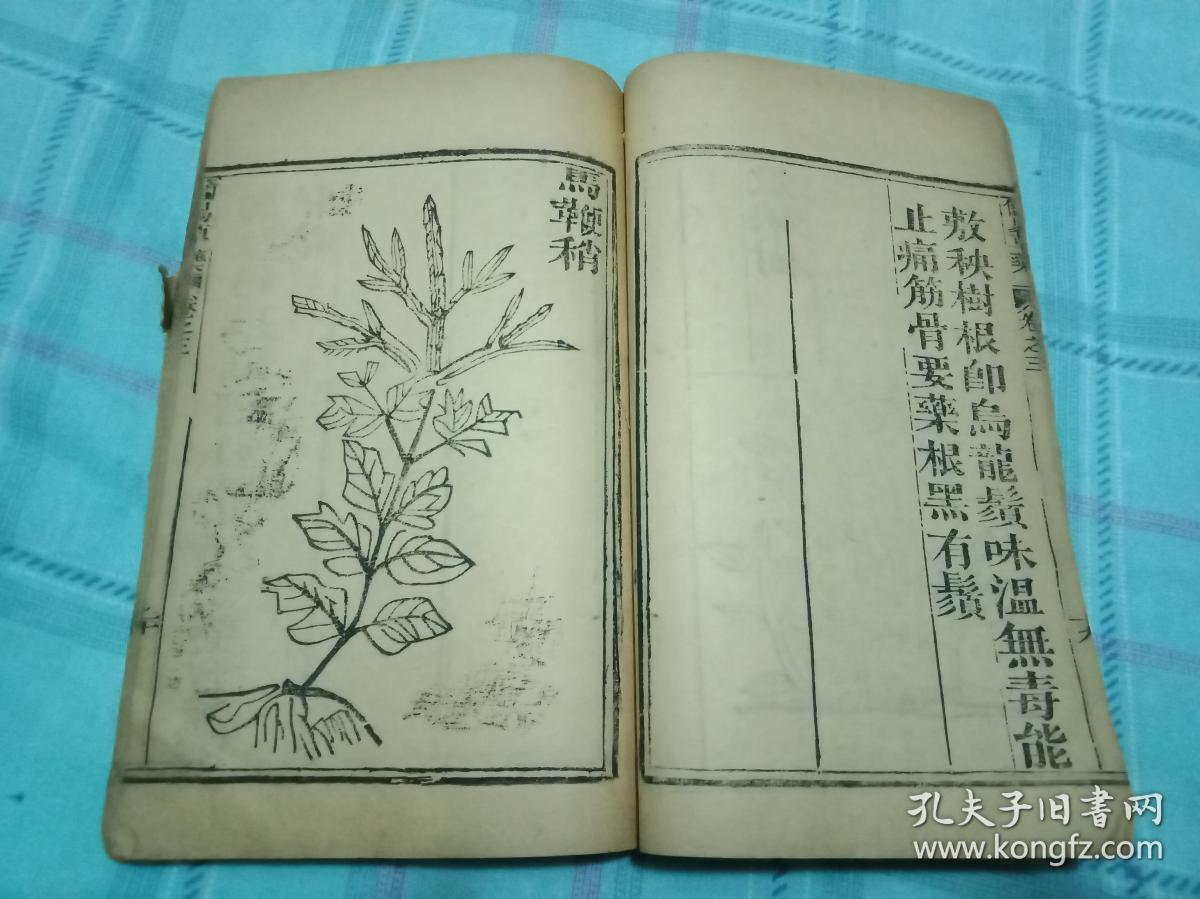 敷秧樹根卽烏龍鬚味溫無毒能
止痛筋骨要藥根黑有鬚
卷之三
十八
馬鞭稍
卷之三
孔夫子旧书网
www.kongfz.com